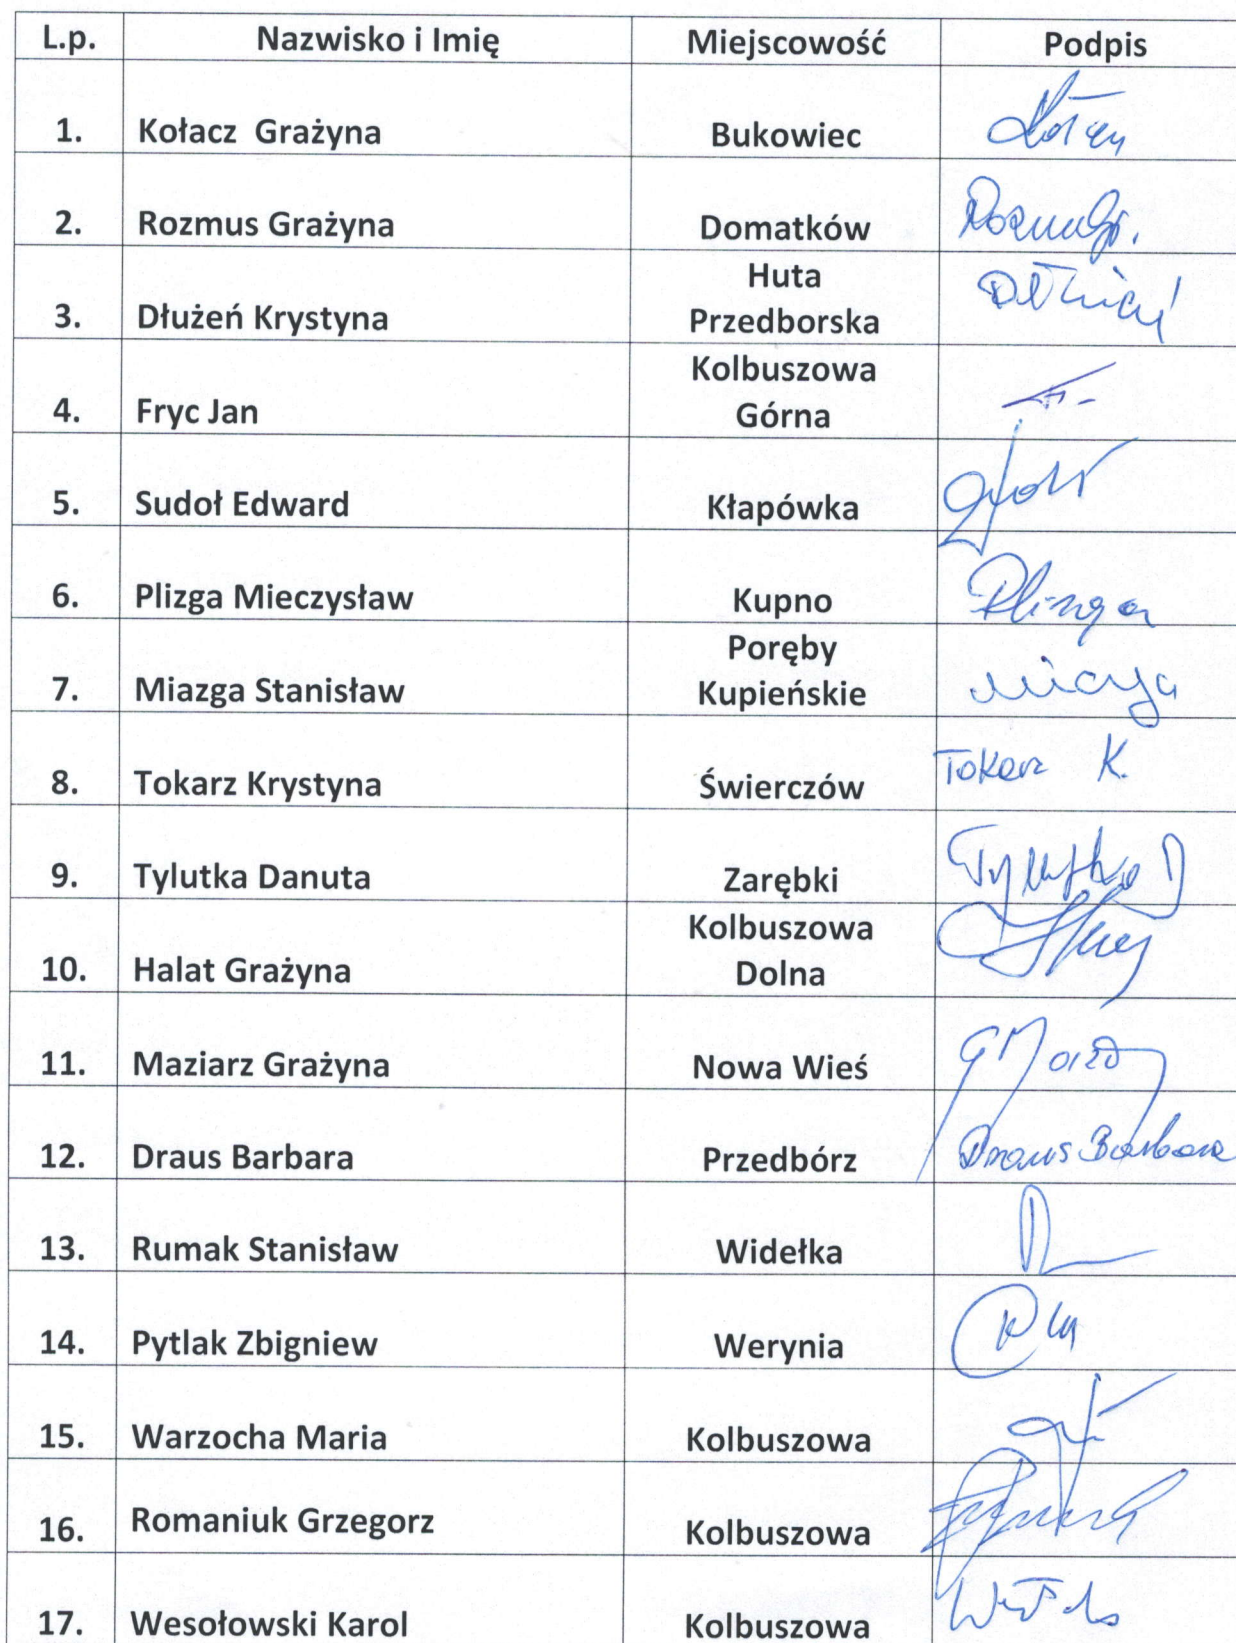 L.p. Nazwisko i Imię Miejscowość Podpis
1. Kołacz Grażyna Bukowiec
2. Rozmus Grażyna Domatków
Huta
3. Dłużeń Krystyna Przedborska
Kolbuszowa
4. Fryc Jan Górna
5. Sudoł Edward Kłapówka
6. Plizga Mieczysław Kupno Plizga
Poręby
7. Miazga Stanisław Kupieńskie Miazga
8. Tokarz Krystyna Świerczów Tokarz K.
9. Tylutka Danuta Zarębki Tylutka D
Kolbuszowa
10. Halat Grażyna Dolna
11. Maziarz Grażyna Nowa Wieś
12. Draus Barbara Przedbórz Draus Barbara
13. Rumak Stanisław Widełka
14. Pytlak Zbigniew Werynia
15. Warzocha Maria Kolbuszowa
16. Romaniuk Grzegorz Kolbuszowa
17. Wesołowski Karol Kolbuszowa